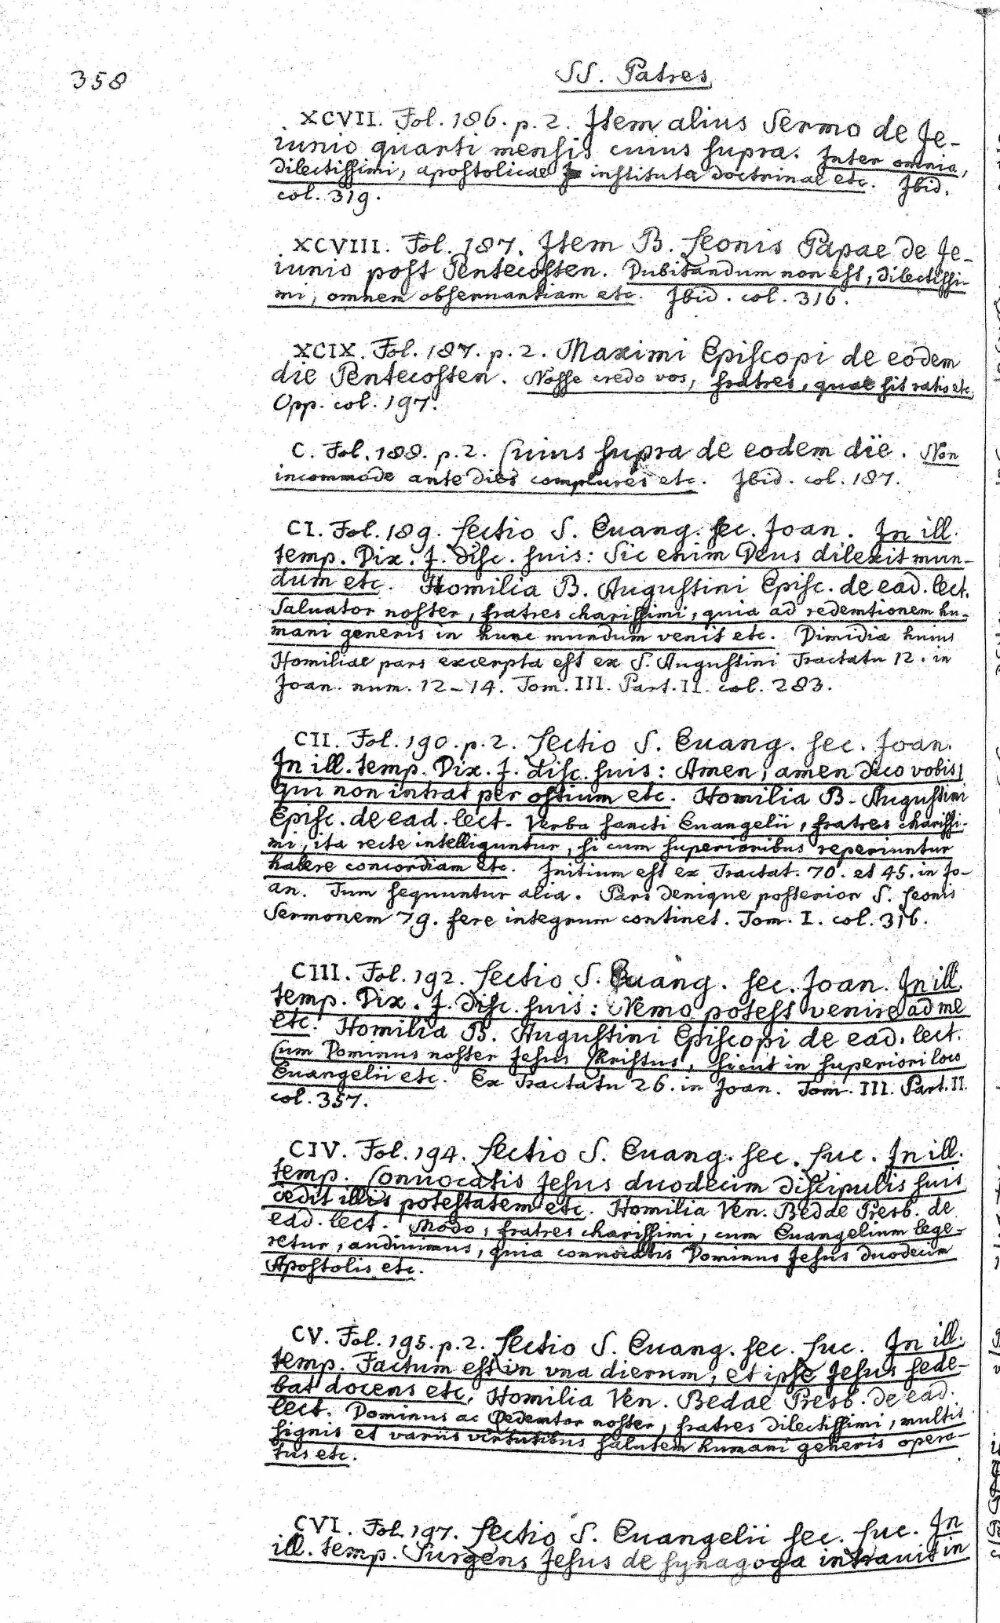 358
SS. Patres
XCVII. Fol. 186. p. 2. Item alius Sermo de Je-
iunio quarti mensis cuius supra. Inter omnia,
dilectissimi, apostolicae instituta doctrinae etc. Ibid.
col. 319.
XCVIII. Fol. 187. Item B. Leonis Papae de Je-
iunio post Pentecosten. Dubitandum non est, dilectissi-
mi, omnem obseruantiam etc. Ibid. col. 316.
XCIX. Fol. 187. p. 2. Maximi Episcopi de eodem
die Pentecosten. Nosse credo vos, fratres, quae sit ratio etc.
Opp. col. 197.
C. Fol. 188. p. 2. Cuius supra de eodem die. Non
incommode ante dies complures etc. Ibid. col. 187.
CI. Fol. 189. Lectio S. Euang. sec. Joan. In ill.
temp. Dix. J. disc. suis: Sic enim Deus dilexit mun-
dum etc. Homilia B. Augustini Episc. de ead. lect.
Saluator noster, fratres charissimi, quia ad redemtionem hu-
mani generis in hunc mundum venit etc. Dimidia huius
Homiliae pars excerpta est ex S. Augustini Tractatu 12. in
Joan. num. 12-14. Tom. III. Part. II. col. 283.
CII. Fol. 190. p. 2. Lectio S. Euang. sec. Joan.
In ill. temp. Dix. J. disc. suis: Amen, amen dico vobis,
qui non intrat per ostium etc. Homilia B. Augustini
Episc. de ead. lect. Verba sancti Euangelii, fratres charissi-
mi, ita recte intelliguntur, si cum superioribus reperiuntur
habere concordiam etc. Initium est ex Tractat. 70. et 45. in Jo-
an. Tum sequuntur alia. Pars denique posterior S. Leonis
Sermonem 79. fere integrum continet. Tom. I. col. 316.
CIII. Fol. 192. Lectio S. Euang. sec. Joan. In ill.
temp. Dix. J. disc. suis: Nemo potest venire ad me
etc. Homilia B. Augustini Episcopi de ead. lect.
Cum Dominus noster Jesus Khristus, sicut in superiori loco
Euangelii etc. Ex Tractatu 26. in Joan. Tom. III. Part. II.
col. 357.
CIV. Fol. 194. Lectio S. Euang. sec. Luc. In ill.
temp. Conuocatis Jesus duodecim discipulis suis
dedit illis potestatem etc. Homilia Ven. Bedae Presb. de
ead. lect. Modo, fratres charissimi, cum Euangelium lege-
retur, audiuimus, quia conuocatis Dominus Jesus duodecim
Apostolis etc.
CV. Fol. 195. p. 2. Lectio S. Euang. sec. Luc. In ill.
temp. Factum est in vna dierum, et ipse Jesus sede-
bat docens etc. Homilia Ven. Bedae Presb. de ead.
lect. Dominus ac Redemtor noster, fratres dilectissimi, multis
signis et variis virtutibus salutem humani generis opera-
tus etc.
CVI. Fol. 197. Lectio S. Euangelii sec. Luc. In
ill. temp. Surgens Jesus de synagoga intrauit in